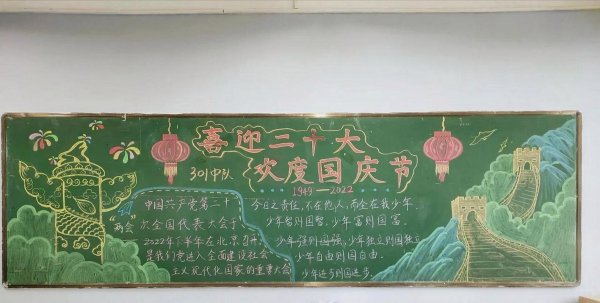 喜迎二十大
欢度国庆节
301中队
1949—2022
"两会"
中国共产党第二十
次全国代表大会于
2022年下半年在北京召开,
是我们党进入全面建设社会
主义现代化国家的重要大会
今日之责任,不在他人,而全在我少年
少年智则国智,少年富则国富,
少年强则国强,少年独立则国独立
少年自由则国自由,
少年进步则国进步。